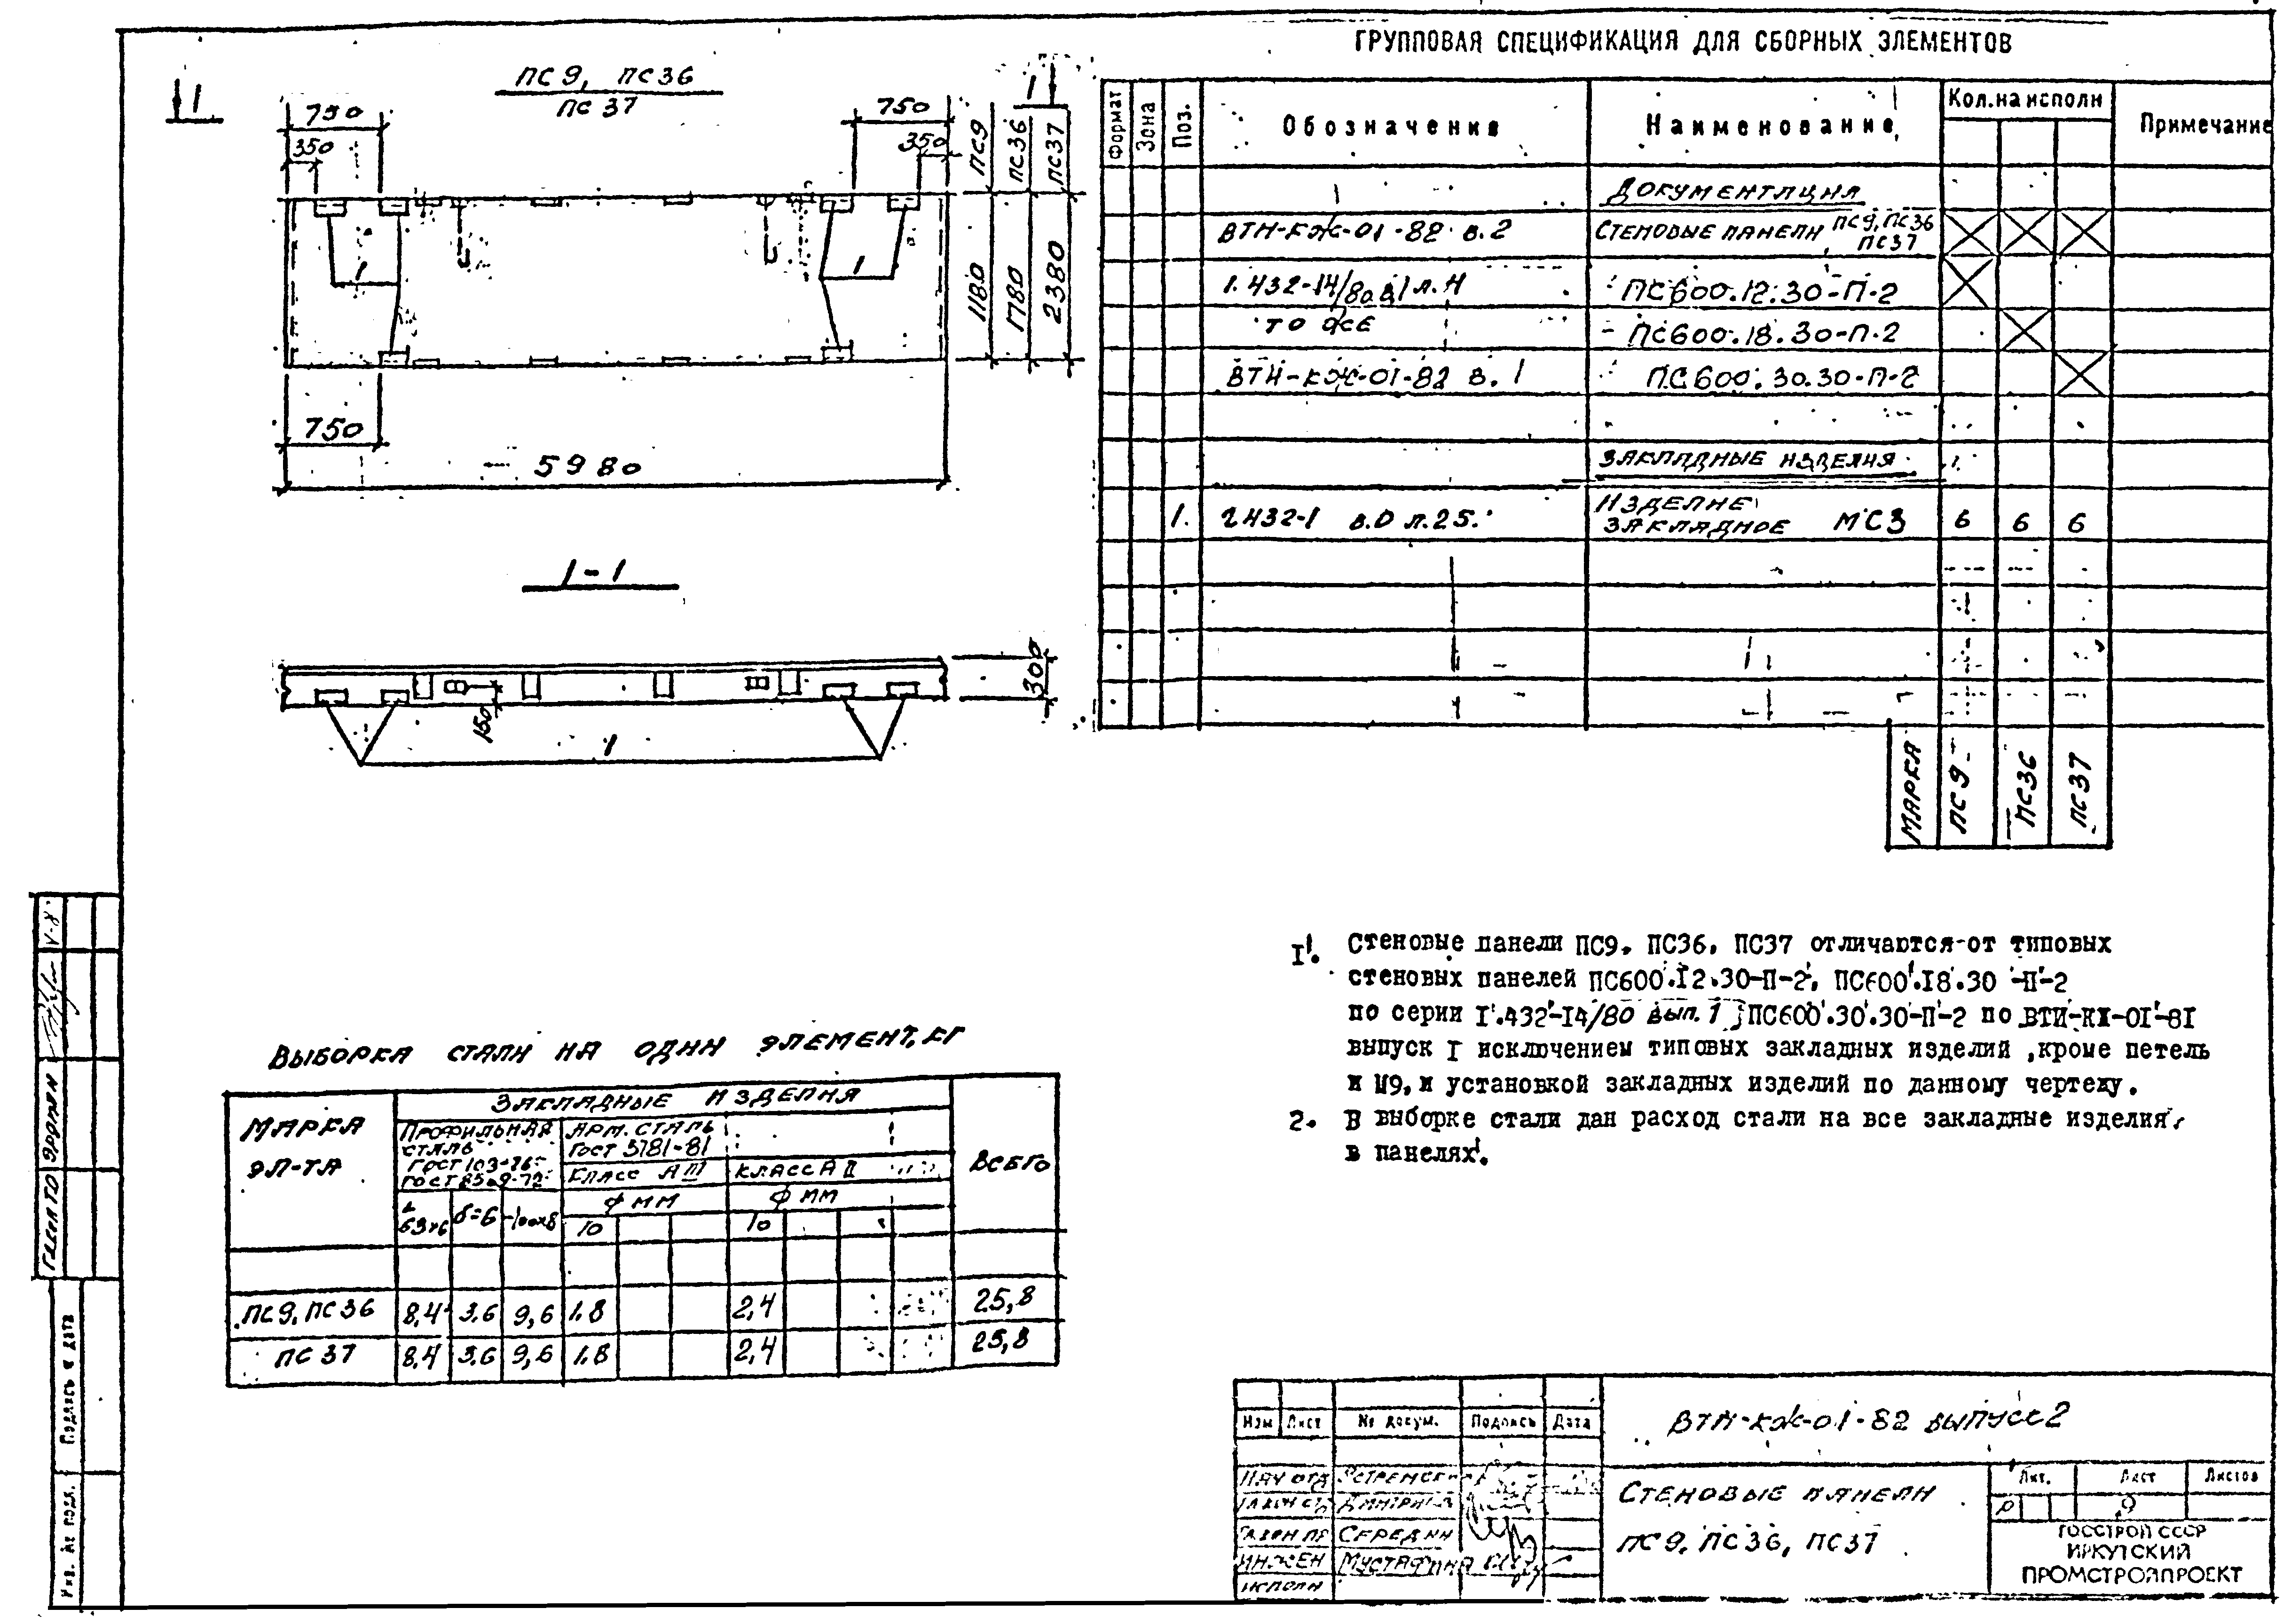 ГРУППОВАЯ СПЕЦИФИКАЦИЯ ДЛЯ СБОРНЫХ ЭЛЕМЕНТОВ
ПС9, ПС36
ПС37
1
1
750
350
750
350
ПС9
ПС36
ПС37
1180
1780
2380
1
1
750
5980
1-1
300
150
1
Формат
Зона
Поз.
Обозначение
Наименование
Кол. на исполн
Примечание
Документация
ВТИ-КЖ-01-82 в.2
Стеновые панели ПС9, ПС36
ПС37
1.432-14/80 в.1 л.4
ПС600.12.30-П-2
то же
ПС600.18.30-П-2
ВТИ-КЖ-01-82 в.1
ПС600.30.30-П-2
Закладные изделия
1.
1.432-1 в.0 л.25.
Изделие
закладное МС3
6
6
6
Марка
ПС9
ПС36
ПС37
1. Стеновые панели ПС9, ПС36, ПС37 отличаются от типовых
стеновых панелей ПС600.12.30-П-2, ПС600.18.30-П-2
по серии 1.432-14/80 вып.1; ПС600.30.30-П-2 по ВТИ-КЖ-01-81
выпуск I исключением типовых закладных изделий, кроме петель
и М9, и установкой закладных изделий по данному чертежу.
2. В выборке стали дан расход стали на все закладные изделия
в панелях.
Выборка стали на один элемент, кг
Марка
эл-та
Закладные изделия
Всего
Профильная
сталь
ГОСТ 103-76
ГОСТ 8509-72
Арм. сталь
ГОСТ 5781-81
Класс АIII
Класс АII
ф мм
ф мм
63×6
δ=6
-100×8
10
10
ПС9, ПС36
8,4
3,6
9,6
1,8
2,4
25,8
ПС37
8,4
3,6
9,6
1,8
2,4
25,8
Изм
Лист
№ докум.
Подпись
Дата
ВТИ-КЖ-01-82 выпуск 2
Нач отд
Середин
Инжен
Мустафина
Исполн
Стеновые панели
ПС9, ПС36, ПС37
Лит.
Лист
Листов
Р
9
ГОССТРОЙ СССР
ИРКУТСКИЙ
ПРОМСТРОЙПРОЕКТ
Подпись и дата
Инв. № подл.